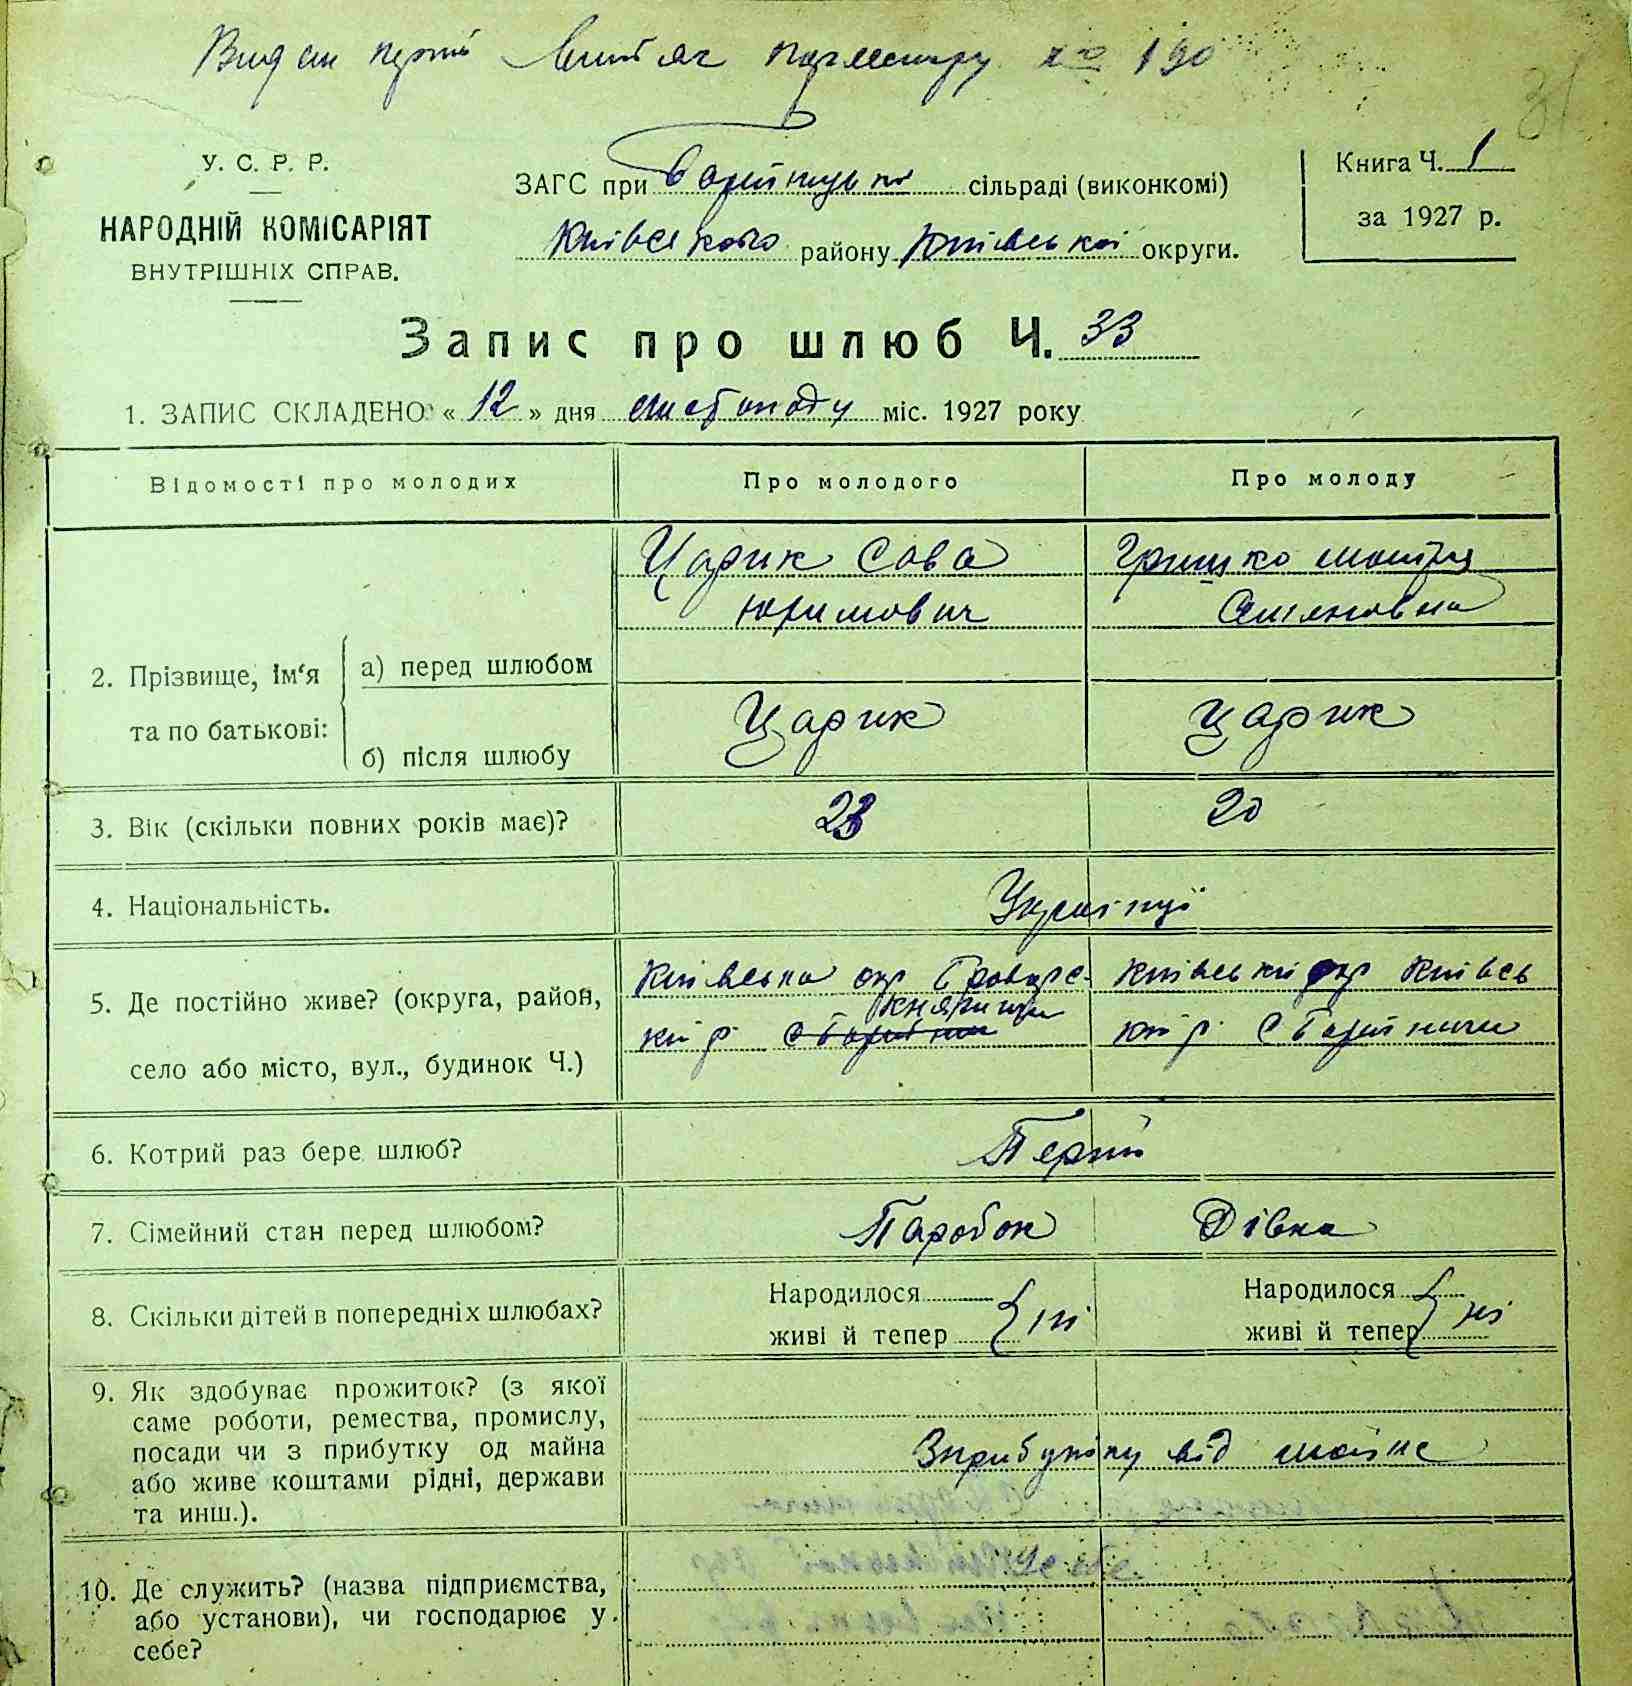 Видан перший витяг
31
У. С. Р. Р.
НАРОДНІЙ КОМІСАРІЯТ
ВНУТРІШНІХ СПРАВ.
ЗАГС при сільраді (виконкомі)
Київського району Київської округи.
Книга Ч. 1
за 1927 р.
Запис про шлюб Ч. 33
1. ЗАПИС СКЛАДЕНО „ 12 " дня листопаду міс. 1927 року
Відомості про молодих
Про молодого
Про молоду
2. Прізвище, ім'я
та по батькові:
а) перед шлюбом
б) після шлюбу
Царик Сава
Юхимович
Грицко Мотря
Семеновна
Царик
Царик
3. Вік (скільки повних років має)?
23
20
4. Національність.
Українці
5. Де постійно живе? (округа, район,
село або місто, вул., будинок Ч.)
Київська окр Броварс-
Княжичи
кий р
Київський окр Київсь
кий р. С Бориспичи
6. Котрий раз бере шлюб?
Перший
7. Сімейний стан перед шлюбом?
Паробок
Дівка
8. Скільки дітей в попередніх шлюбах?
Народилося
живі й тепер
ні
Народилося
живі й тепер
ні
9. Як здобуває прожиток? (з якої
саме роботи, ремества, промислу,
посади чи з прибутку од майна
або живе коштами рідні, держави
та инш.).
Зприбутку від майна
10. Де служить? (назва підприємства,
або установи), чи господарює у
себе?